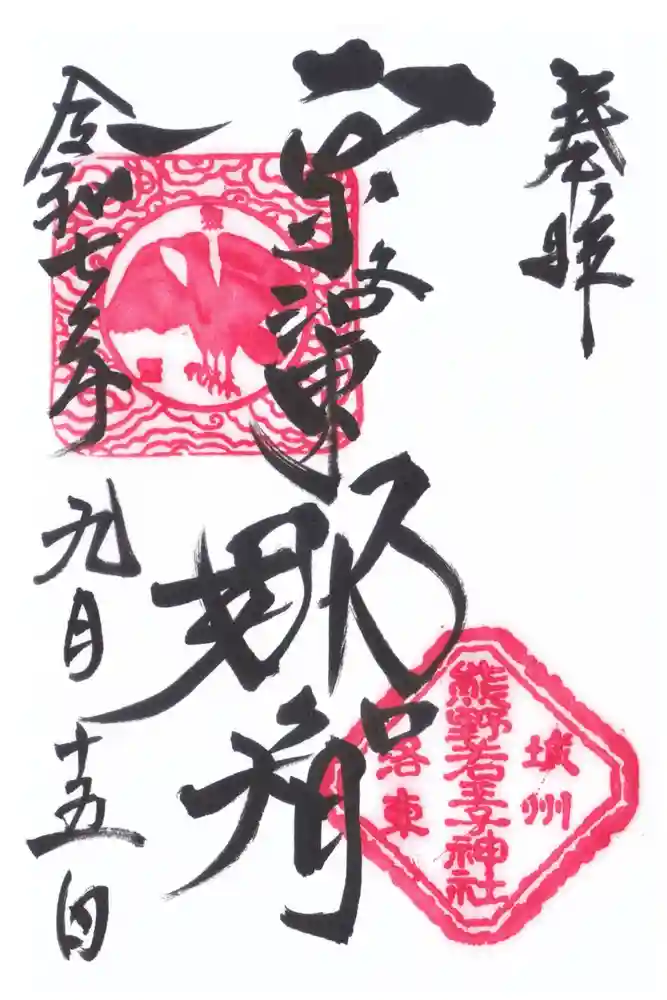 奉拝
京洛東
那智
令和七年九月十五日
城州
熊野若王子神社
洛東